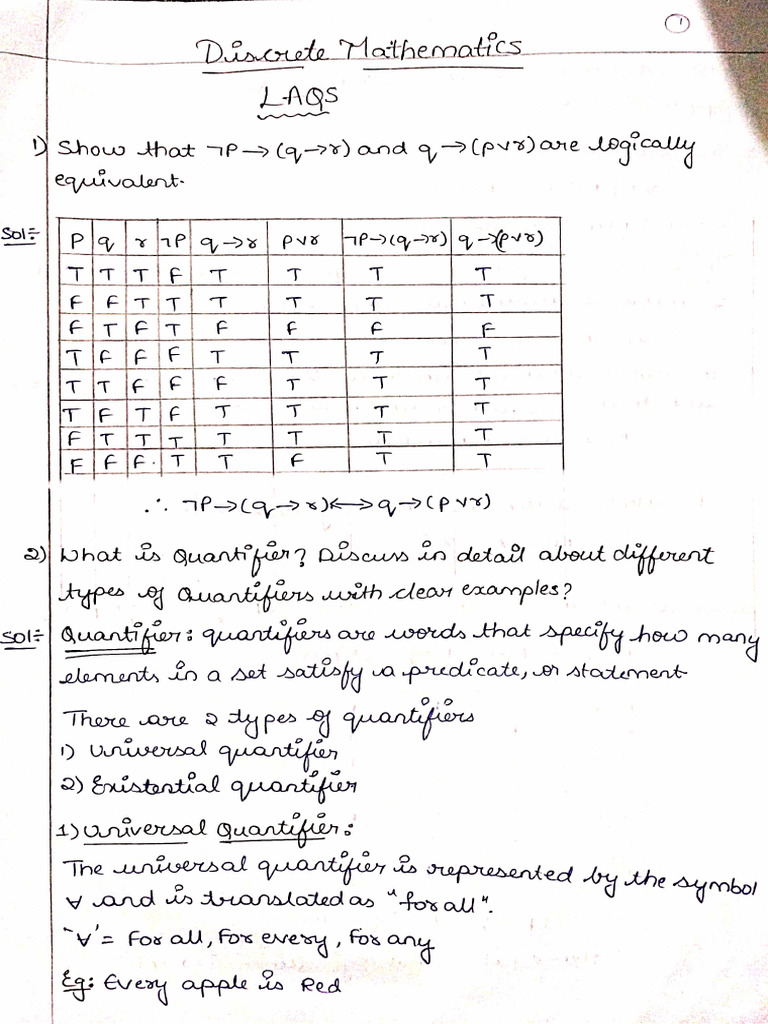 1
Discrete Mathematics
LAQS
1) Show that ¬P→(q→r) and q→(p∨r) are logically
equivalent.
Sol:-
P q r ¬P q→r p∨r ¬P→(q→r) q→(p∨r)
T T T F T T T T
F F T T T T T T
F T F T F F F F
T F F F T T T T
T T F F F T T T
T F T F T T T T
F T T T T T T T
F F F. T T F T T
∴ ¬P→(q→r)⟷q→(p∨r)
2) What is Quantifier? Discuss in detail about different
types of Quantifiers with clear examples?
Sol:- Quantifier: quantifiers are words that specify how many
elements in a set satisfy a predicate, or statement
There are 2 types of quantifiers
1) Universal quantifier
2) Existential quantifier
1) Universal Quantifier:
The universal quantifier is represented by the symbol
∀ and is translated as "for all".
'∀' = For all, For every, For any
Eg: Every apple is Red